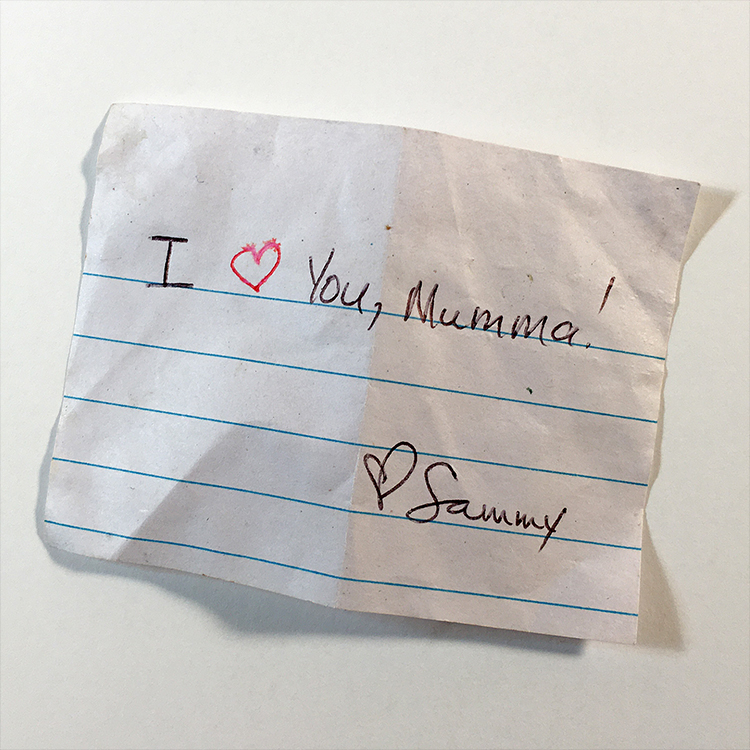 I ♡ You, Mumma!
♡ Sammy